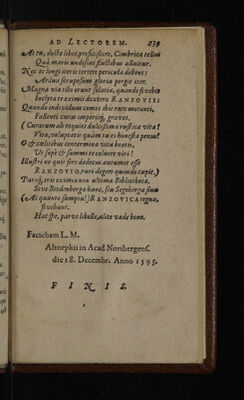 AD LECTOREM. 239
At tu, docte liber, proficiscere, Cimbrica tellus
Quà maris undosani fluctibus alluitur.
Nec te longi iteris terrere pericula debent:
Ardua scruposum gloria pergit iter.
Magna viæ tibi erunt solatia, quando fovebit
Inclyta te eximii dextera RANZOVII:
Quando individuum comes ibis ruri umeanti,
Fallenti curas imperiiq́, graves.
(Curarum ah requies dulcissima rustica vita!
Vita, voluptatis quàm tu es honesta penus!
O & cælitibus contermina vita beatis,
Ut sæpè & summi te coluere viri!
Illustri ne quis fors dedecus autumet esse
RANZOVIO, ruri degere quando cupit.)
Parsq́, eris eximia non ultima Bibliotheca.
Sive Bredenberga hanc, seu Segeberga sinu
(At quinto sumptu!) RANZOVICA regna,
fovebunt.
Hac spe, parve libelle, abite vade bono.
Faciebam L. M.
Altorphii in Acad Norsbergens.
die 18. Decembr. Anno 1593.
FINIS.